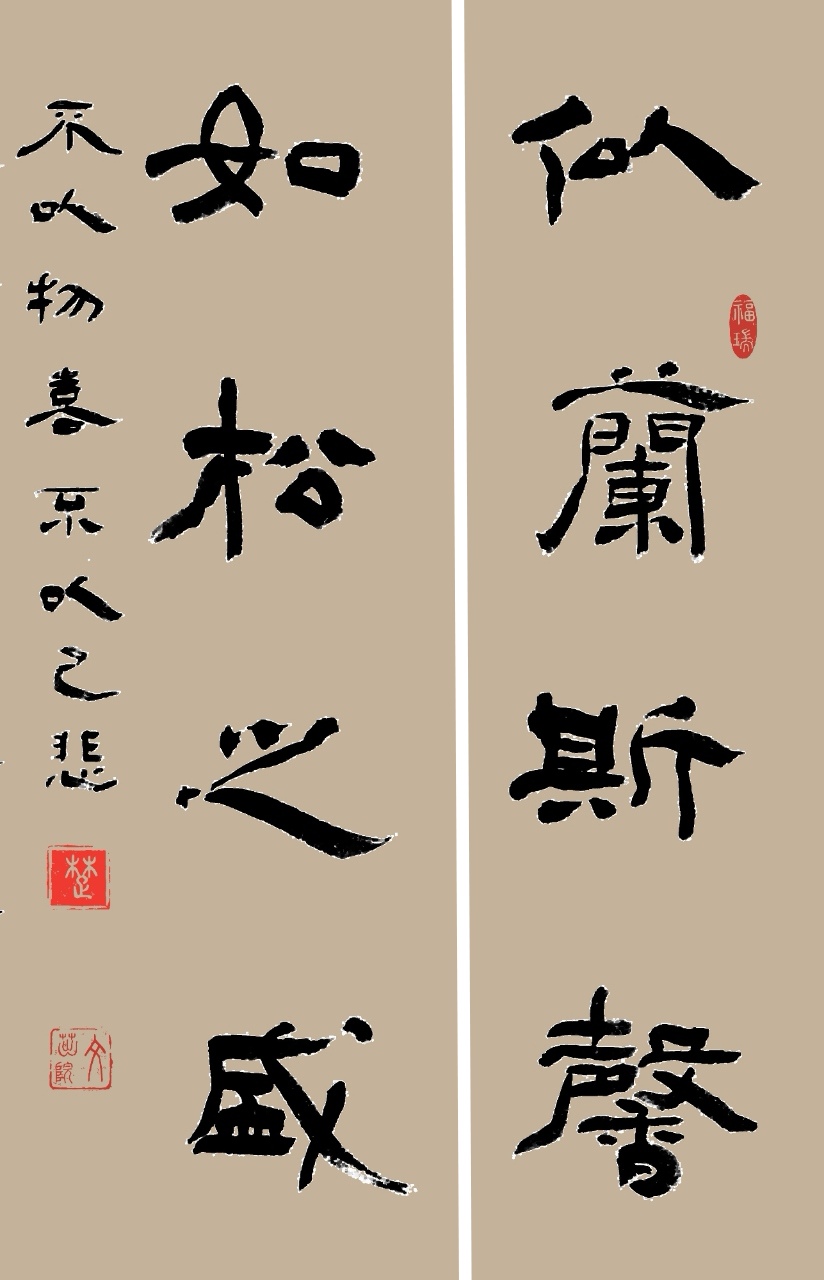 似蘭斯馨
如松之盛
不以物喜不以己悲
福
楚